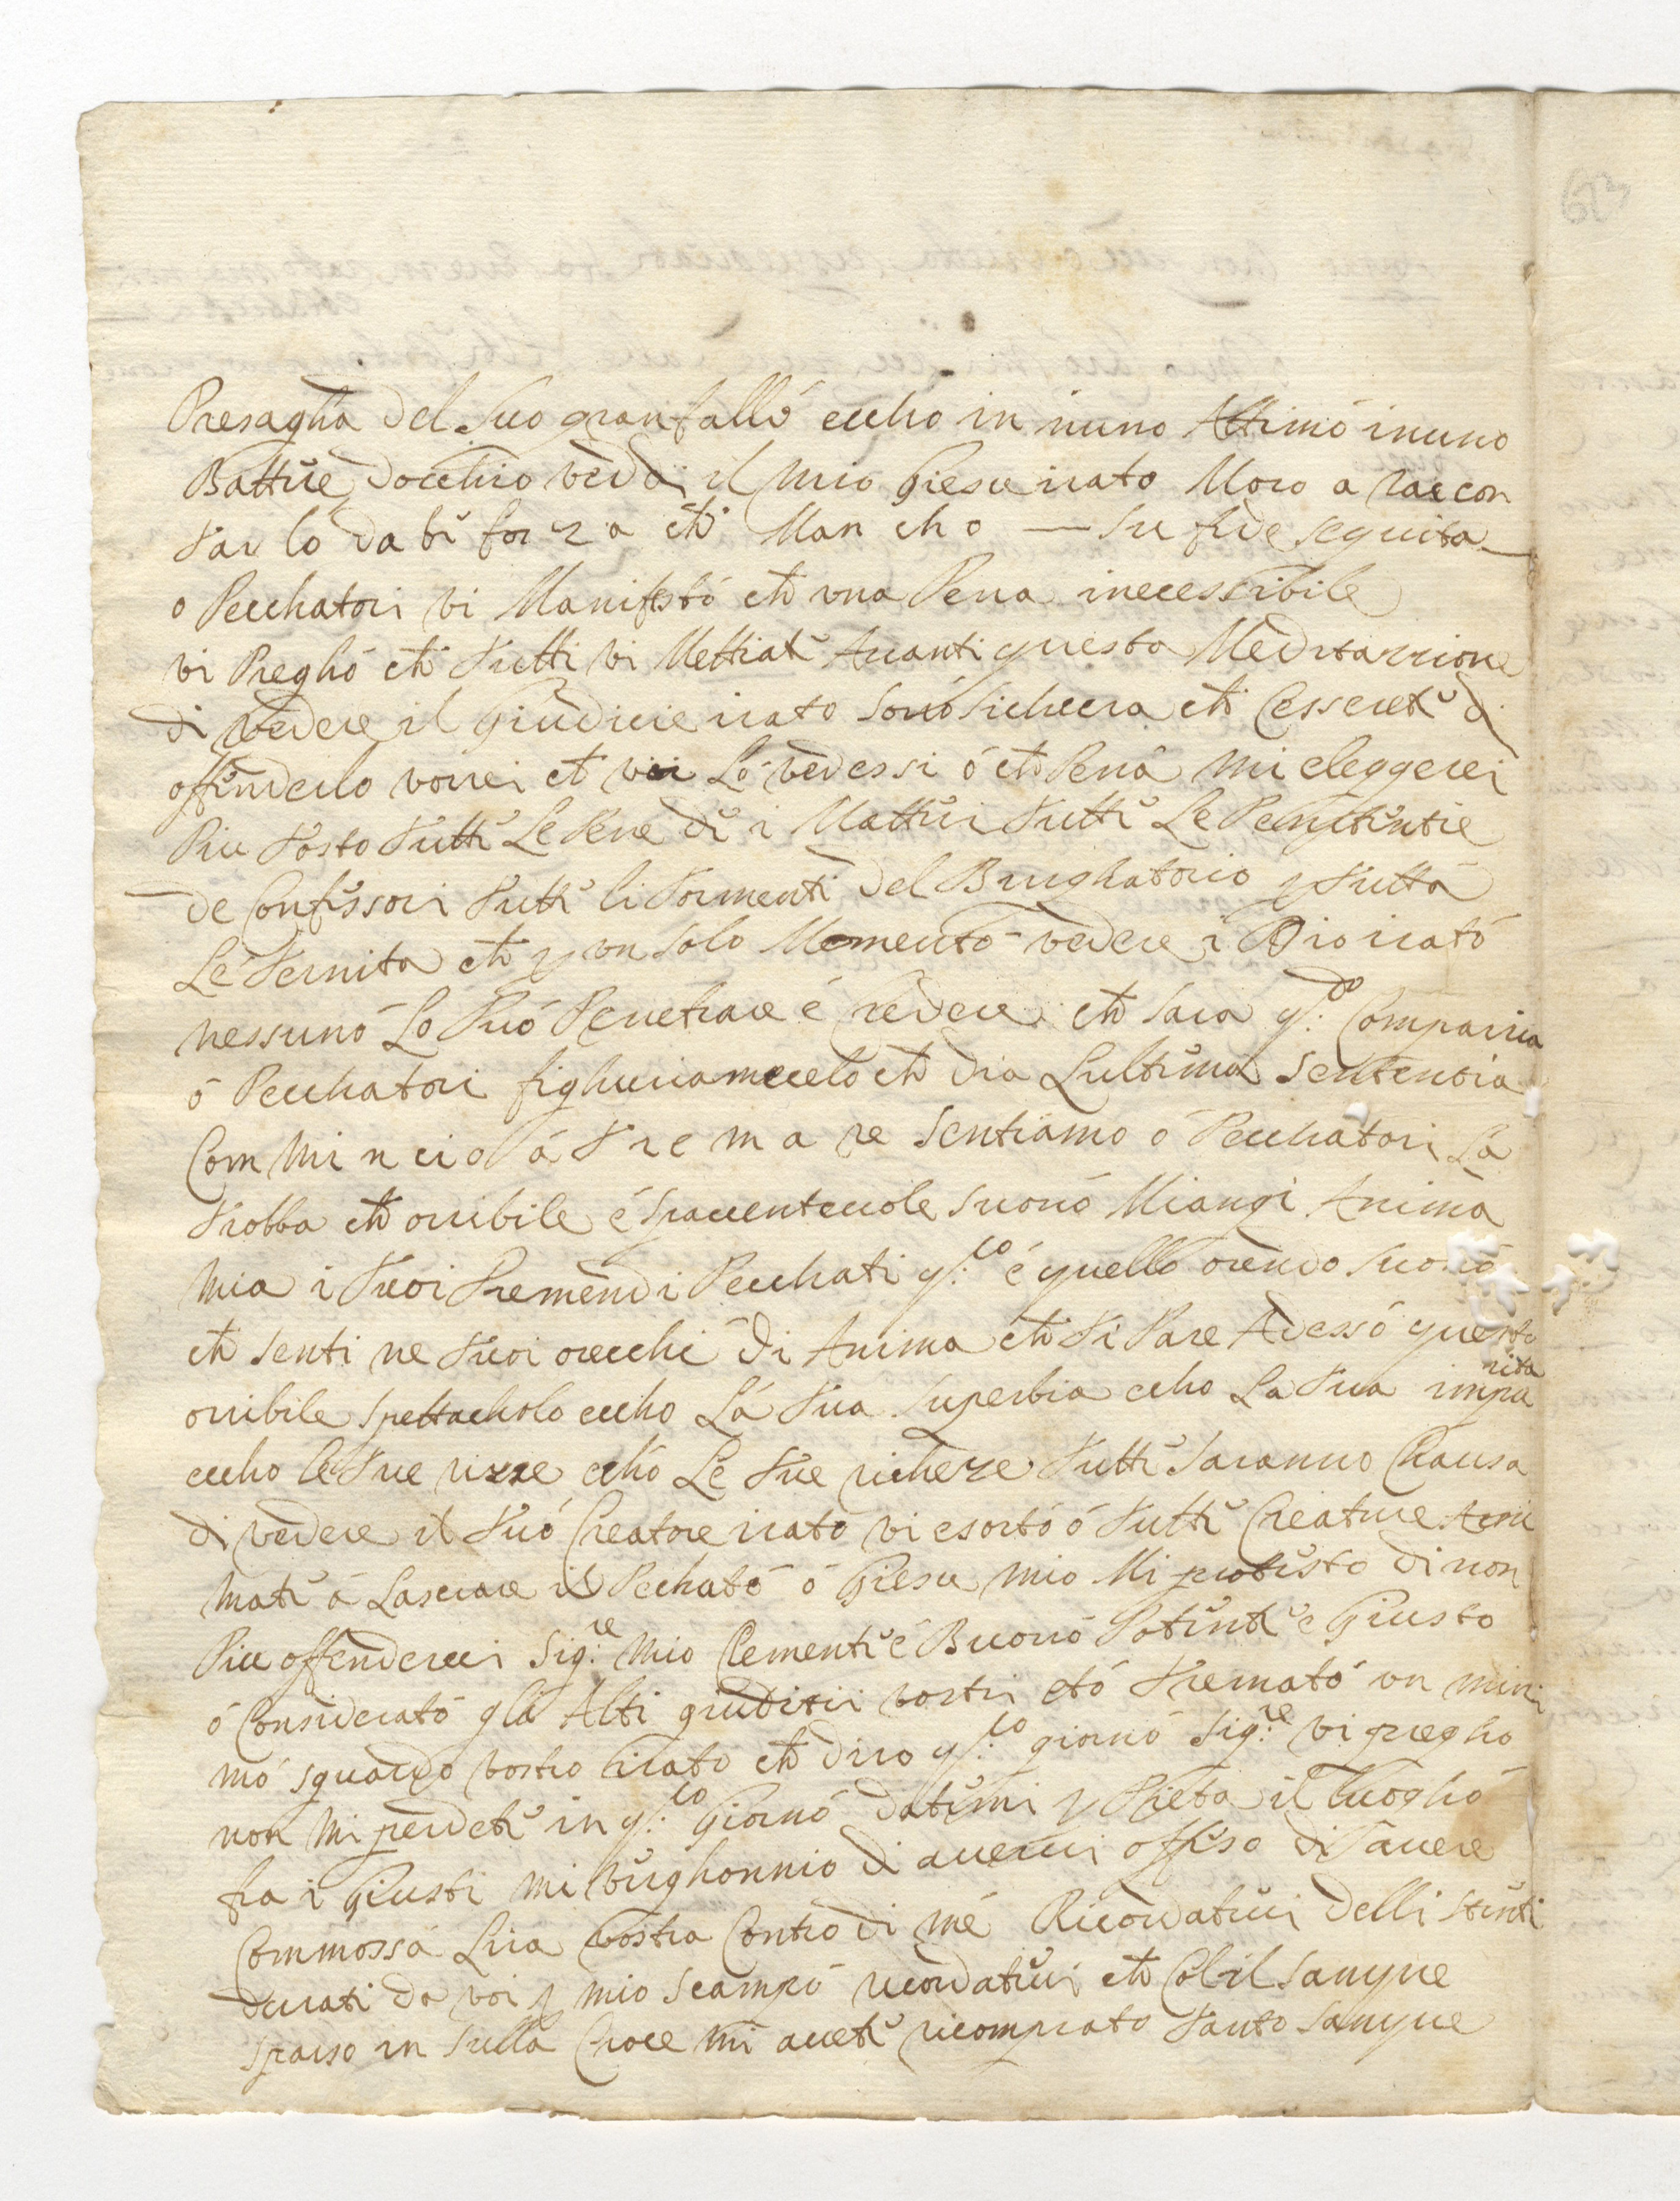 Presagha del suo granfalló eccho in nuno Attimó inuno
Battúe docchio veddi il mio Giesu irato Moro a raccon
tarlo da bi forza ché Mancho — su fide seguita
o Pecchatori vi Manifestó ché una Pena inecessibile
vi Preghó ché tutti vi Mettiate Avanti questa Meditazzione
di vedere il Giudicie irato sonó sichuera ché Cesserete di
offenderlo vorrei ché voi Ló vedessi ó ché Pena mi eleggerei
Piu tosto tutte Le Pene di i Mattiri tutte Le Penitentie
de Confessori tutti li tormenti del Burghatorio p tutta
Le ternita ché p un solo Momentó vedere i Dio irató
nessunó Lo Puó Penetrare é credere ché sara q:do Comparira
ó Pecchatori fighuriamccelo ché dia Lultima sententia
Com Min cio á tremare sentiamo ó Pecchatori La
trobba ché orribile é spaventevole suonó Miangi Anima
mia i tuoi tremendi Pecchati q:to é quello orendo suonó
ché senti ne tuoi orecchi Di Anima ché ti Pare Adessó questo
orribile spettacholo eccho Lá tua superbia echo La tua impu
rita
eccho le tue rizze echó Le tue richeze tutte saranno Chausa
di vedere il tuó Creatore irató vi esortó ó tutte Creature Ani
mate á Lasciare il Pecható ó Giesu mio Mi protesto di non
Piu offendervi Sig:re mio Clemente é Buonó Potente e Giusto
ó Considerató gla Alti giuditii vostri etó tremató un mini
mó sguardo vostro irato ché diro q:to giornó Sig:re vi pregho
non mi perdete in q:to Giornó datemi p Pieta il luoghó
fra i Giusti mi verghonnio di avervi offeso di avere
Commossá Lira vostra Contro di mé Ricordatevi delli stenti
durati da voi p mio scampó ricordatevi ché Col il sangue
sparso in sulla Croce mi avete ricomprato tanto sangue